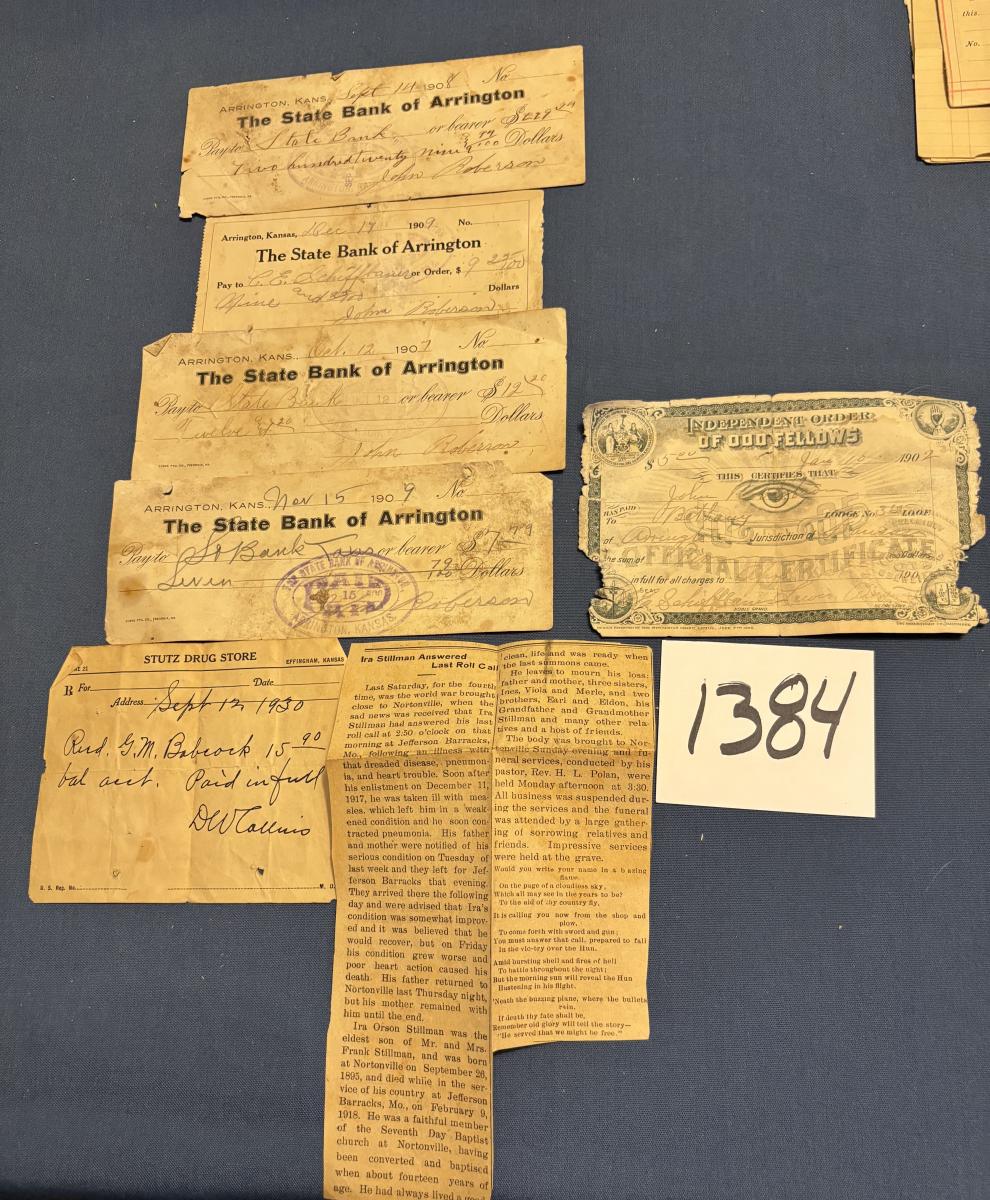 Arrington, Kans., Sept 14 1908 No.
The State Bank of Arrington
Pay to State Bank or bearer $
Two hundred twenty nine Dollars
John Roberson
Arrington, Kansas, Dec 17 1909 No.
The State Bank of Arrington
Pay to C. E. Schiffbauer or Order, $ 9 25/00
Nine and Dollars
John Roberson
Arrington, Kans., Oct. 12 1907 No.
The State Bank of Arrington
Pay to State Bank or bearer $ 12 20
Twelve & 20 Dollars
John Roberson
Arrington, Kans., Nov 15 1909 No
The State Bank of Arrington
Pay to St Bank or bearer $ 7
Seven Dollars
THE STATE BANK OF ARRINGTON,
PAID
15
ARRINGTON, KANSAS.
Roberson
STUTZ DRUG STORE EFFINGHAM, KANSAS
For Date
Address Sept 12 1930
Recd. G.M. Babcock 15 90
bal acct. Paid in full
DW Collins
U. S. Reg. No. M. D.
Ira Stillman Answered
Last Roll Call
Last Saturday, for the fourth
time, was the world war brought
close to Nortonville, when the
sad news was received that Ira
Stillman had answered his last
roll call at 2:50 o'clock on that
morning at Jefferson Barracks,
Mo., following an illness with
that dreaded disease, pneumon-
ia, and heart trouble. Soon after
his enlistment on December 11,
1917, he was taken ill with mea-
sles, which left him in a weak-
ened condition and he soon con-
tracted pneumonia. His father
and mother were notified of his
serious condition on Tuesday of
last week and they left for Jef-
ferson Barracks that evening.
They arrived there the following
day and were advised that Ira's
condition was somewhat improv-
ed and it was believed that he
would recover, but on Friday
his condition grew worse and
poor heart action caused his
death. His father returned to
Nortonville last Thursday night,
but his mother remained with
him until the end.
Ira Orson Stillman was the
eldest son of Mr. and Mrs.
Frank Stillman, and was born
at Nortonville on September 26,
1895, and died while in the ser-
vice of his country at Jefferson
Barracks, Mo., on February 9,
1918. He was a faithful member
of the Seventh Day Baptist
church at Nortonville, having
been converted and baptised
when about fourteen years of
age. He had always lived a good
clean, life and was ready when
the last summons came.
He leaves to mourn his loss:
father and mother, three sisters,
Ines, Viola and Merle, and two
brothers, Earl and Eldon, his
Grandfather and Grandmother
Stillman and many other rela-
tives and a host of friends.
The body was brought to Nor-
tonville Sunday evening and fu-
neral services, conducted by his
pastor, Rev. H. L. Polan, were
held Monday afternoon at 3:30.
All business was suspended dur-
ing the services and the funeral
was attended by a large gather-
ing of sorrowing relatives and
friends. Impressive services
were held at the grave.
Would you write your name in a b azing
flame.
On the page of a cloudless sky,
Which all may see in the years to be?
To the aid of thy country fly,
It is calling you now from the shop and
plow,
To come forth with sword and gun;
You must answer that call, prepared to fall
In the vic-try over the Hun.
Amid bursting shell and fires of hell
To battle throughout the night;
But the morning sun will reveal the Hun
Hustening in his flight.
'Neath the buzzing plane, where the bullets
rain,
If death thy fate shall be,
Remember old glory will tell the story—
"He served that we might be free."
INDEPENDENT ORDER
OF ODD FELLOWS
$5.00 Jan 10 1902
THIS CERTIFIES THAT
John
HAS PAID
TO Bethany LODGE No. I.O.O.F.
of Jurisdiction of
OFFICIAL CERTIFICATE
the sum of Dollars
in full for all charges to 190
NOBLE GRAND.
1384
this.
No.